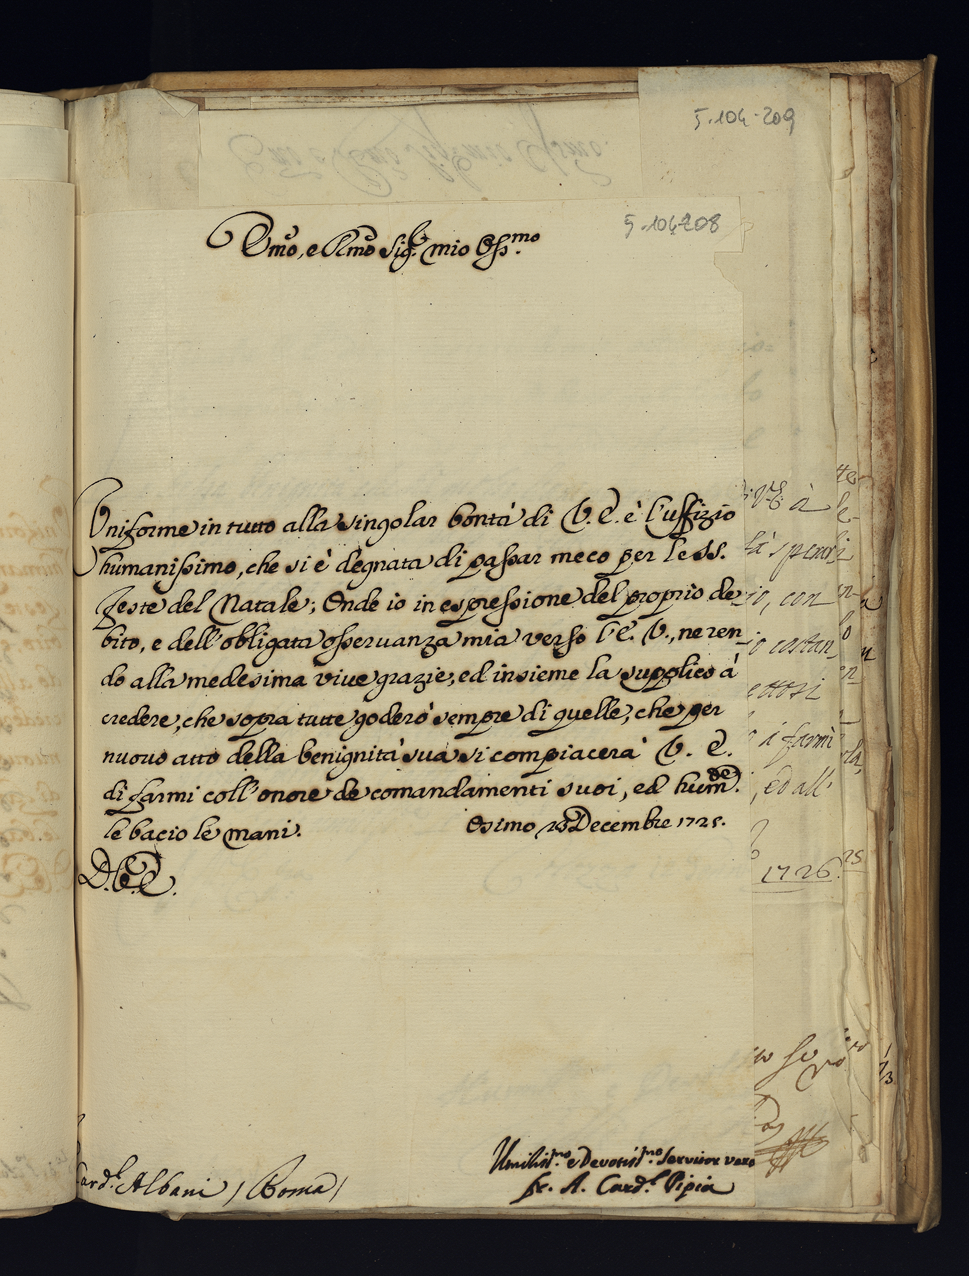 5-104-209
5-104-208
Emo, e Rmo Sig.r mio Oss.mo
Uniforme in tutto alla singolar bontà di V. E. è l'uffizio
humanissimo, che si è degnata di passar meco per le SS.
Feste del Natale; Onde io in espressione del proprio de
bito, e dell'obligata osservanza mia verso l'E. V., ne ren
do alla medesima vive grazie, ed insieme la supplico à
credere, che sopra tutte goderò sempre di quelle, che per
nuovo atto della benignità sua si compiacerà V. E.
di farmi coll'onore de comandamenti suoi, ed hum.te
le bacio le mani. Osimo 23 Decembre 1725.
D. V. E.
Card.l Albani / Roma /
Umilis.mo e Devotis.mo Servitor vero
fr. A. Card.l Pipia
io, con
io costan
à farmi
, ed all'
1726.